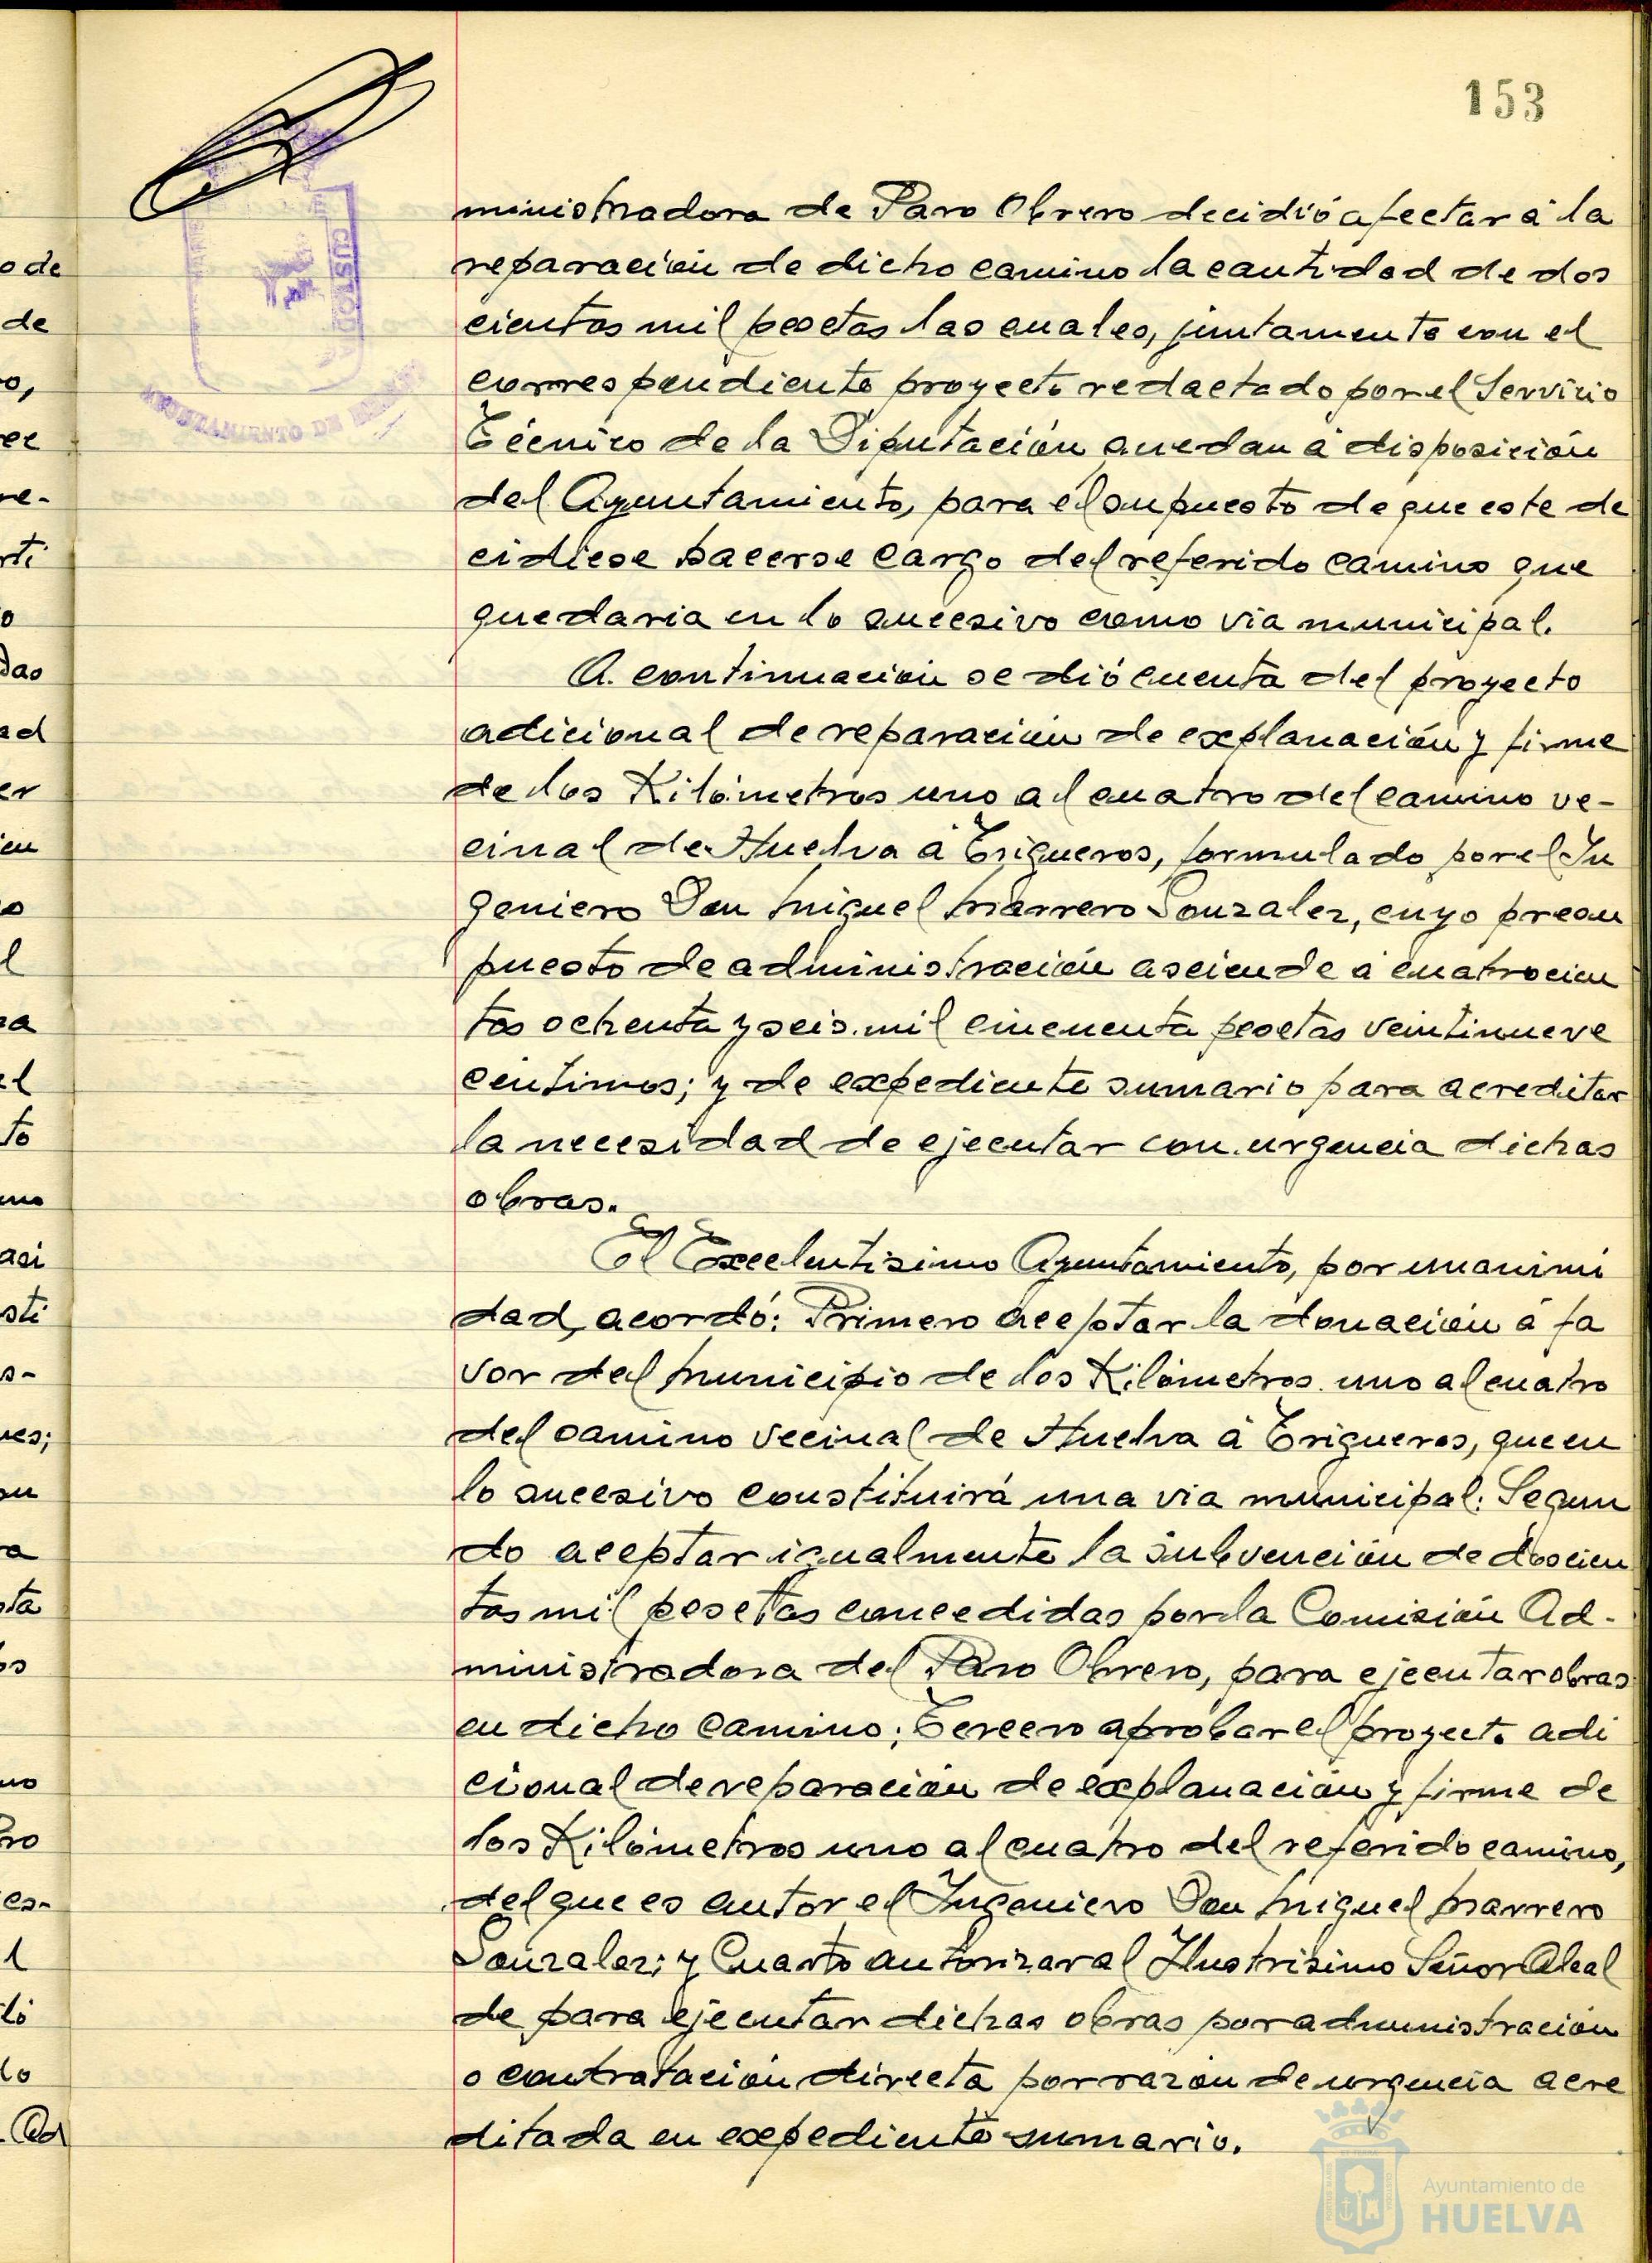 153
ministradora de Paro Obrero decidió afectar á la
reparación de dicho camino la cantidad de dos
cientas mil pesetas las cuales, juntamente con el
correspondiente proyecto redactado por el Servicio
Técnico de la Diputación quedan á disposición
del Ayuntamiento, para el supuesto de que este de
cidiese hacerse cargo del referido camino que
quedaria en lo sucesivo como via municipal.
A continuación se dió cuenta del proyecto
adicional de reparación de explanación y firme
de los Kilómetros uno al cuatro del camino ve-
cinal de Huelva á Trigueros, formulado por el In
geniero Don Miguel Marrero Gonzalez, cuyo presu
puesto de administración asciende á cuatrocien
tas ochenta y seis mil cincuenta pesetas veintinueve
centimos; y de expediente sumario para acreditar
la necesidad de ejecutar con urgencia dichas
obras.
El Excelentisimo Ayuntamiento, por unanimi
dad, acordó: Primero aceptar la donación á fa
vor del Municipio de los Kilómetros uno al cuatro
del camino vecinal de Huelva á Trigueros, que en
lo sucesivo constituirá una via municipal: Segun
do aceptar igualmente la subvención de doscien
tas mil pesetas concedidas por la Comisión Ad-
ministradora del Paro Obrero, para ejecutar obras
en dicho camino; Tercero aprobar el proyecto adi
cional de reparación de explanación y firme de
los Kilómetros uno al cuatro del referido camino,
del que es autor el Ingeniero Don Miguel Marrero
Gonzalez; y Cuarto autorizar al Ilustrisimo Señor Alcal
de para ejecutar dichas obras por administración
o contratación directa por razón de urgencia acre
ditada en expediente sumario.
CUSTOD
AYUNTAMIENTO DE HUELVA
o de
de
o,
ec
re-
rti
o
das
ad
er
l
ra
el
to
sti
s-
es;
ra
sta
os
no
ro
es-
l
do
Ad
Ayuntamiento de
HUELVA